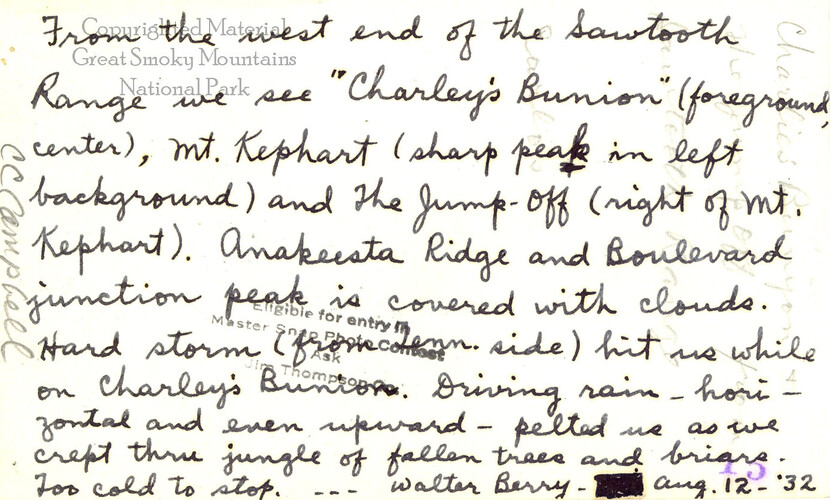 Copyrighted Material
Great Smoky Mountains
National Park
From the west end of the Sawtooth
Range we see "Charley's Bunion" (foreground,
center), Mt. Kephart (sharp peak in left
background) and The Jump-Off (right of Mt.
Kephart). Anakeesta Ridge and Boulevard
junction peak is covered with clouds.
Hard storm (from Tenn. side) hit us while
on Charley's Bunion. Driving rain - hori-
zontal and even upward - pelted us as we
crept thru jungle of fallen trees and briars.
Too cold to stop. --- Walter Berry - Aug. 12 - '32
CC Campbell
Eligible for entry in
Master Snap Photo Contest
Ask
Jim Thompson Co.
15